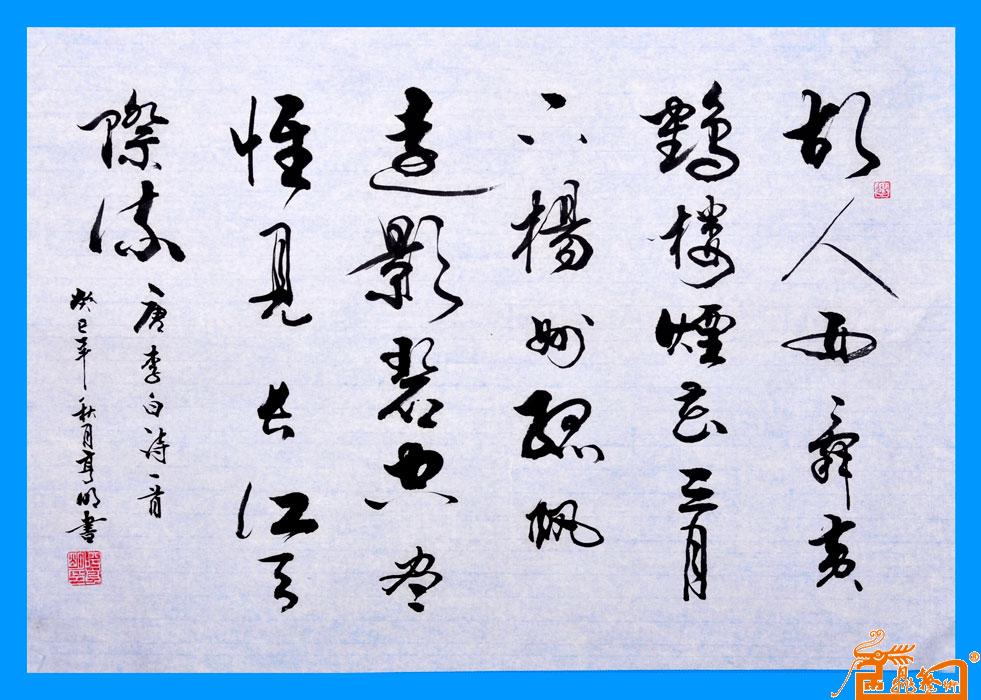 故人西辭黄
鶴楼煙花三月
下楊州孤帆
遠影碧空盡
惟見長江天
際流
唐李白詩一首
癸巳年秋月亨明書